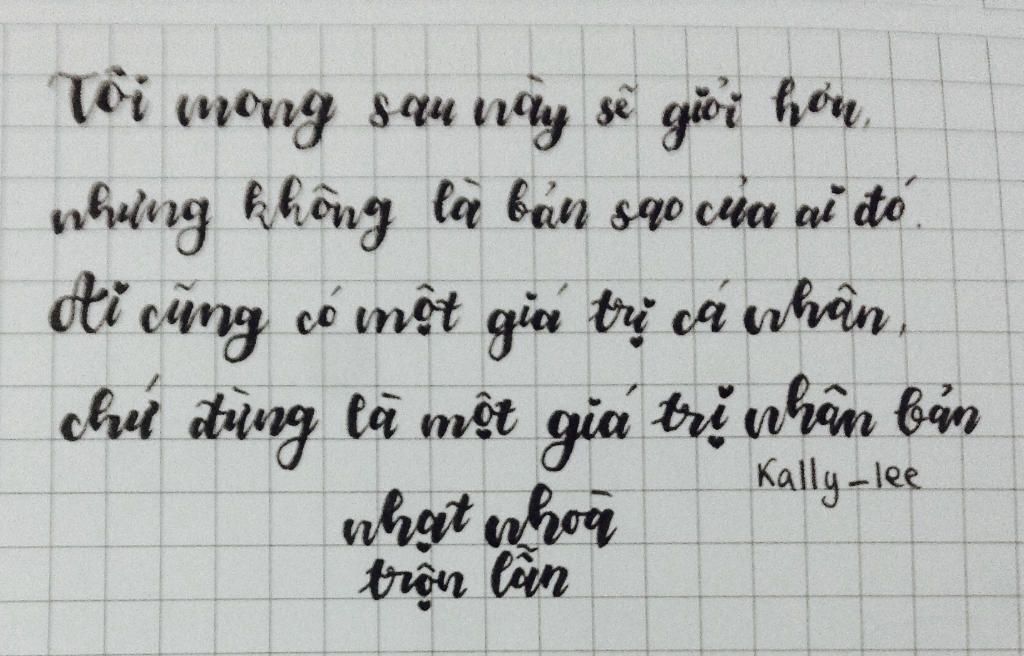 Tôi mong sau này sẽ giỏi hơn,
nhưng không là bản sao của ai đó.
Ai cũng có một giá trị cá nhân,
chứ đừng là một giá trị nhân bản
Kally-lee
nhạt nhoà
trộn lẫn